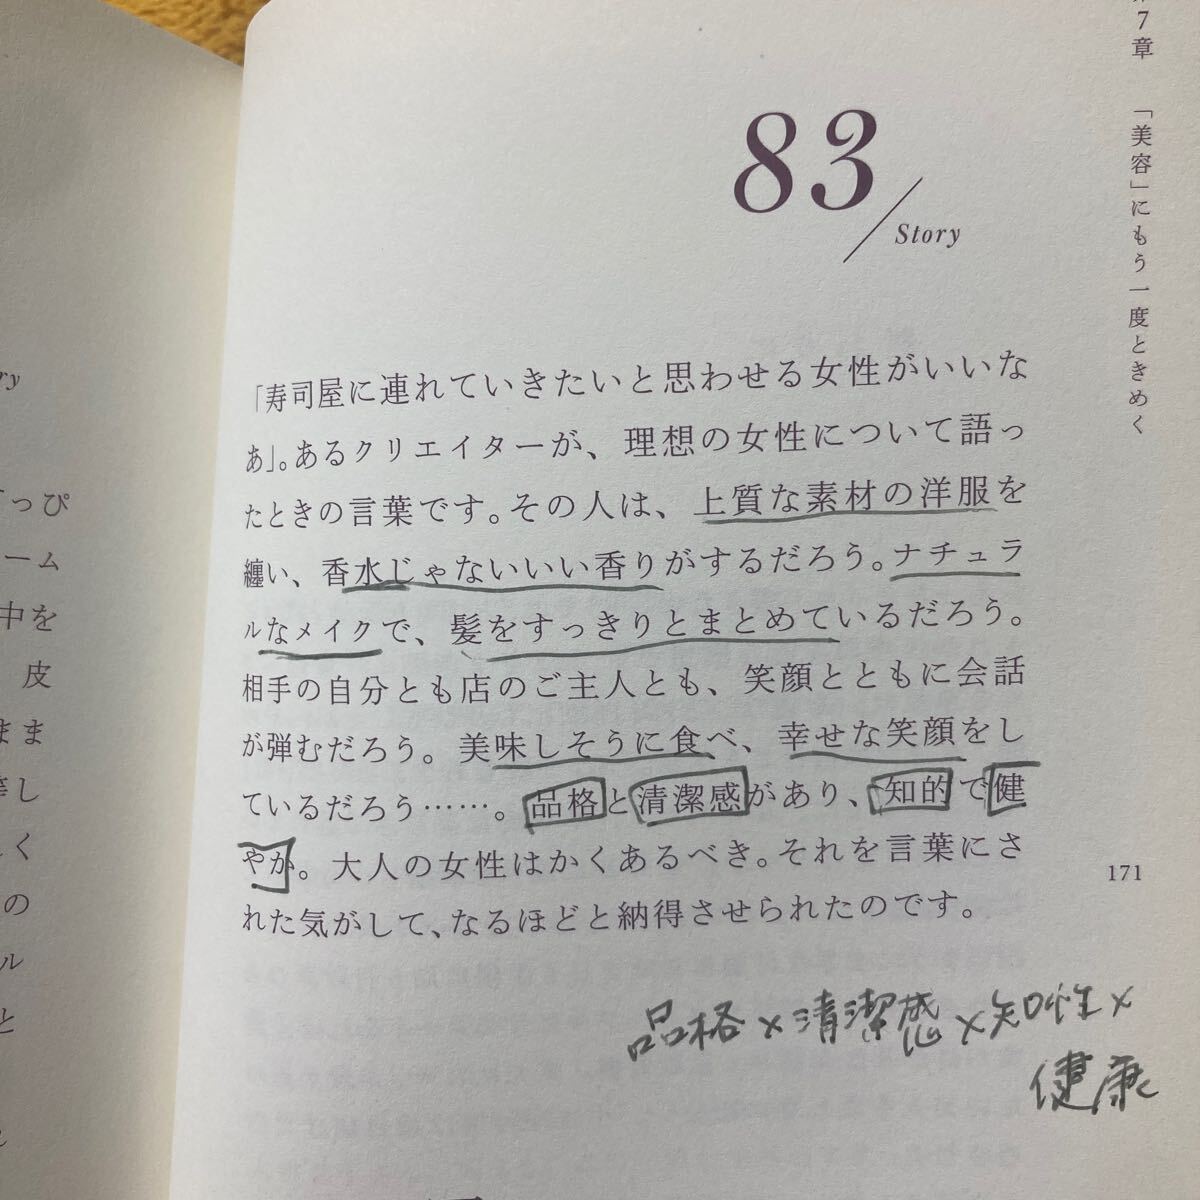 7章 「美容」にもう一度ときめく
83
Story
「寿司屋に連れていきたいと思わせる女性がいいな
あ」。あるクリエイターが、理想の女性について語っ
たときの言葉です。その人は、上質な素材の洋服を
纏い、香水じゃないいい香りがするだろう。ナチュラ
ルなメイクで、髪をすっきりとまとめているだろう。
相手の自分とも店のご主人とも、笑顔とともに会話
が弾むだろう。美味しそうに食べ、幸せな笑顔をし
ているだろう……。品格と清潔感があり、知的で健
やか。大人の女性はかくあるべき。それを言葉にさ
れた気がして、なるほどと納得させられたのです。
171
品格×清潔感×知性×
健康
っぴ
ーム
中を
皮
まま
し
く
の
ル
と